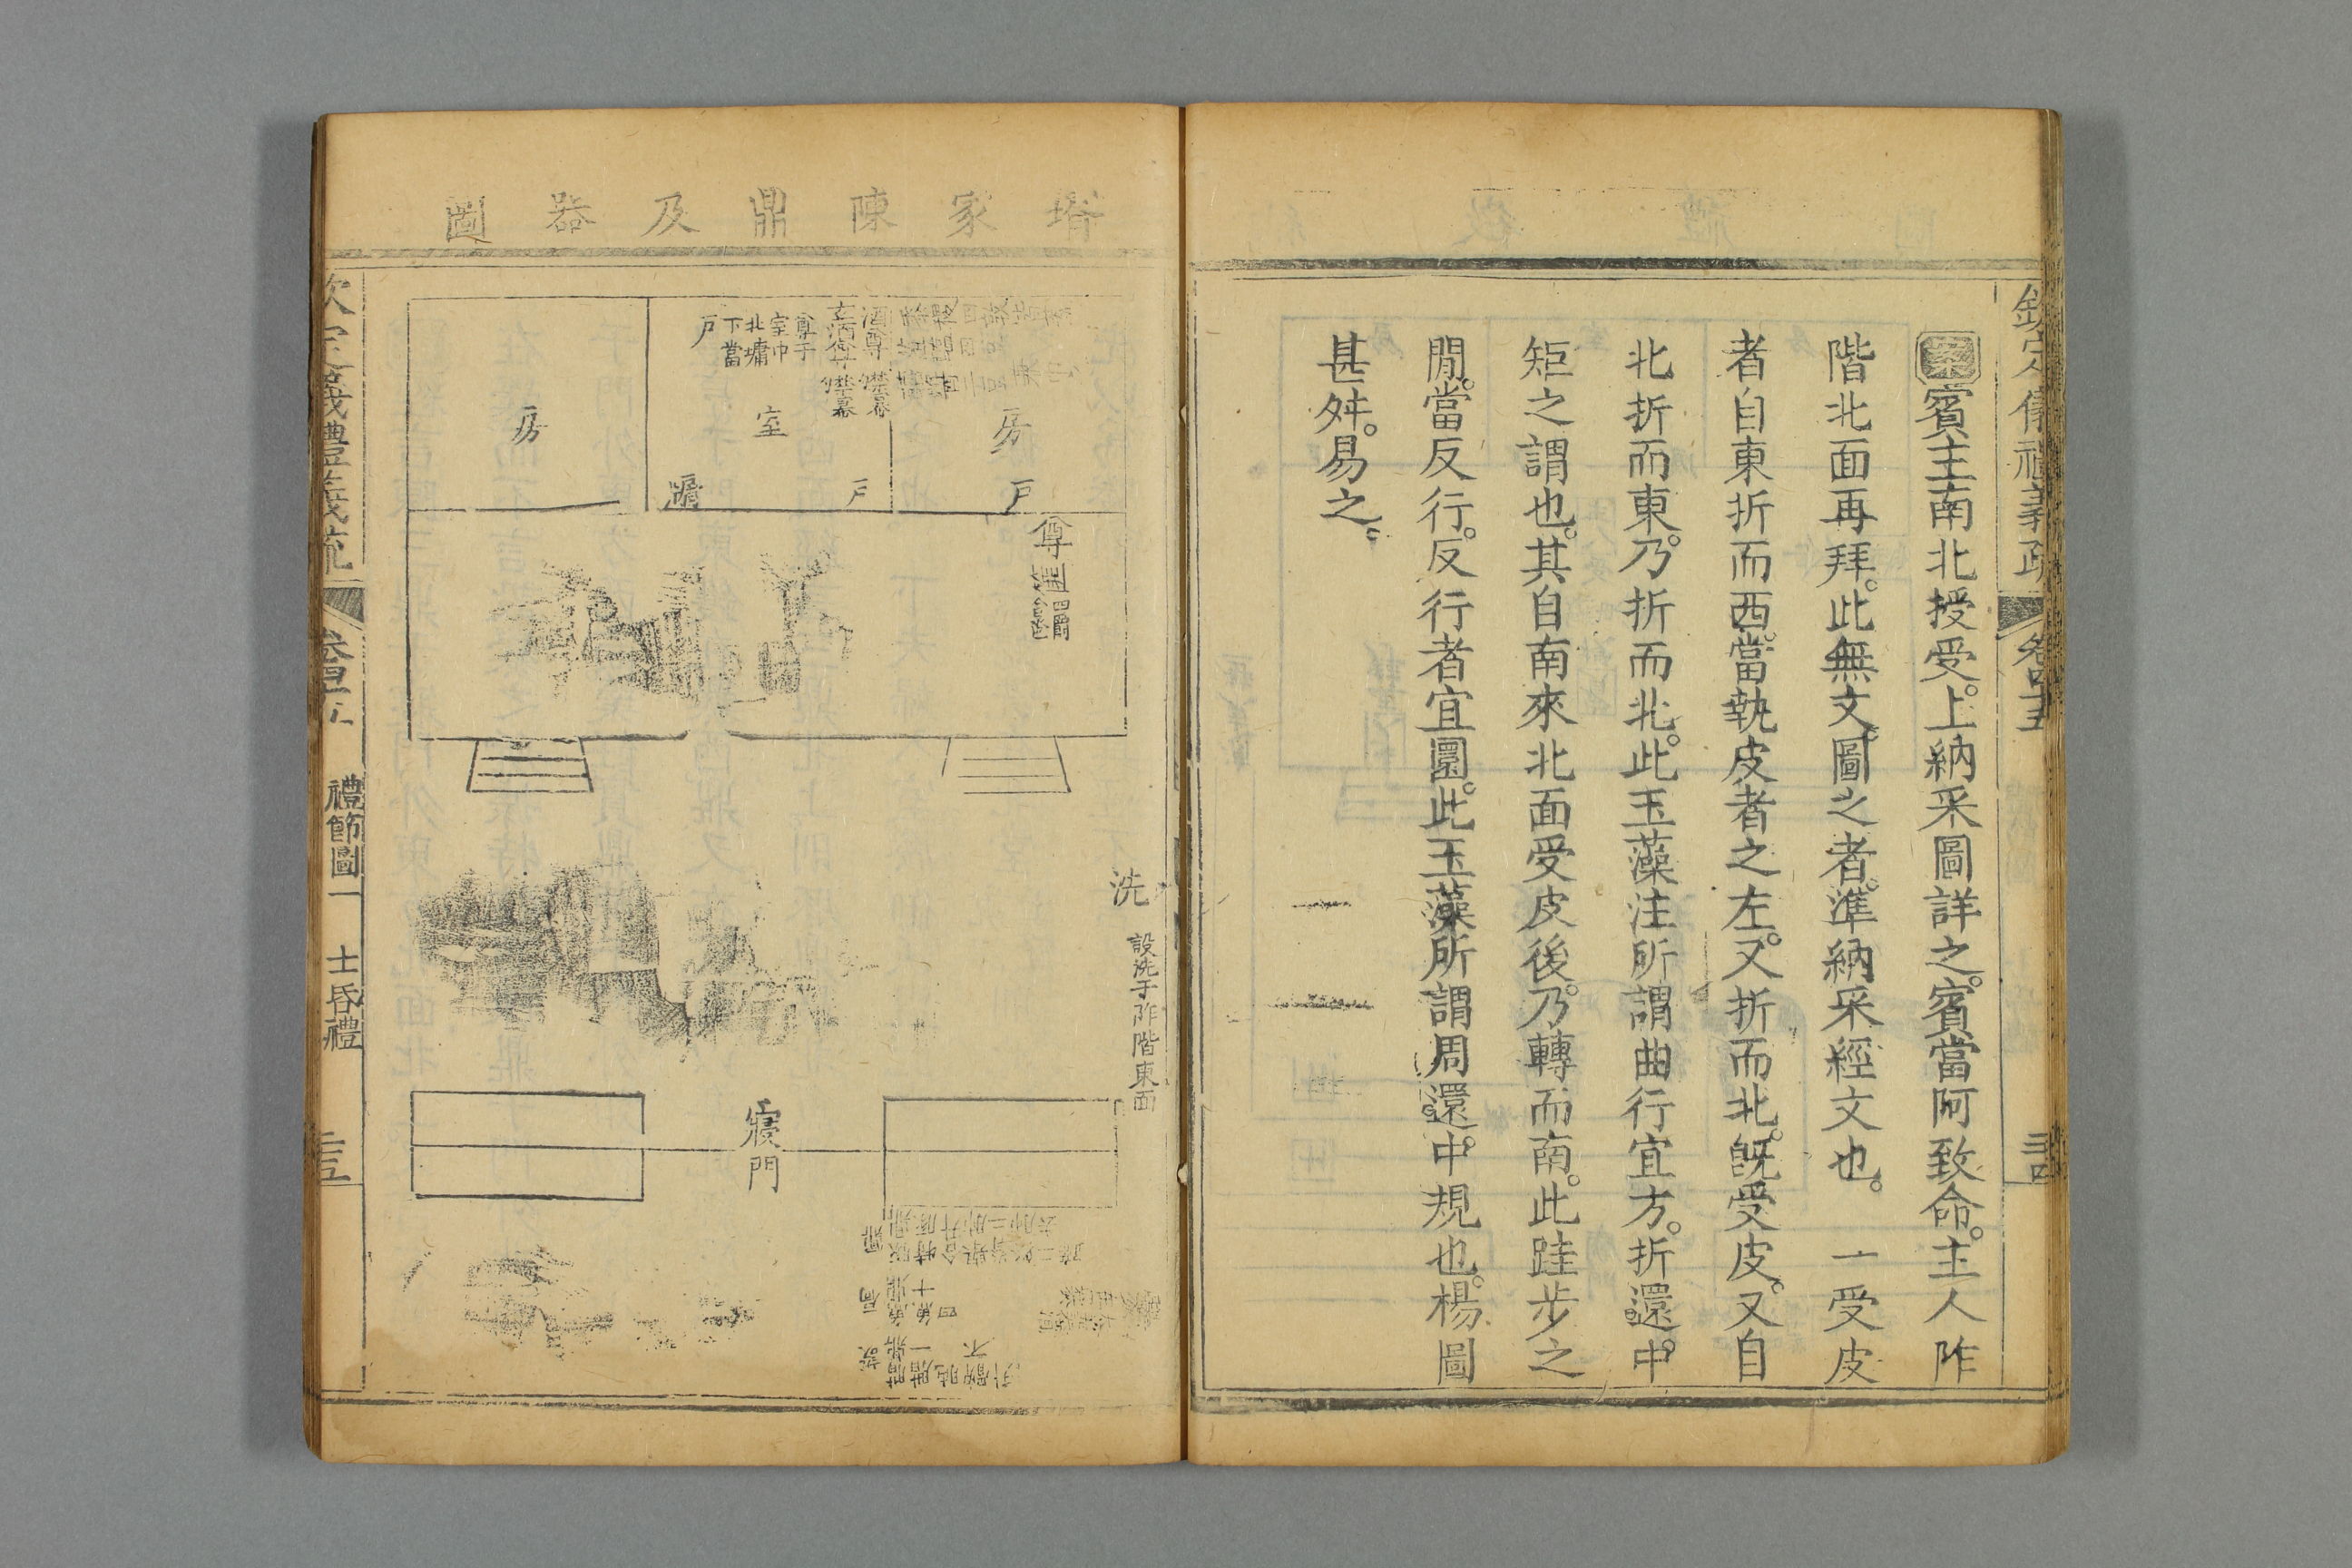 欽定儀禮義疏
卷四十五
三十四
案賓主南北授受。上納采圖詳之。賓當阿致命。主人阼
階北面再拜。此無文。圖之者。準納采經文也。 一受皮
者自東折而西。當執皮者之左。又折而北。旣受皮。又自
北折而東。乃折而北。此玉藻注所謂曲行宜方。折還。中
矩之謂也。其自南來北面受皮後。乃轉而南。此跬步之
閒。當反行。反行者宜圜。此玉藻所謂周還。中規也。楊圖
甚舛。易之。
壻家陳鼎及器圖
房
戶
室
戶
牖
房
酒尊 綌幂
玄酒尊 綌幂
尊于
室中
北墉
下當
戶
尊
洗
設洗于阼階東南
寢門
鼎
扃
設
欽定義禮義疏
禮節圖一
士昏禮
三十五